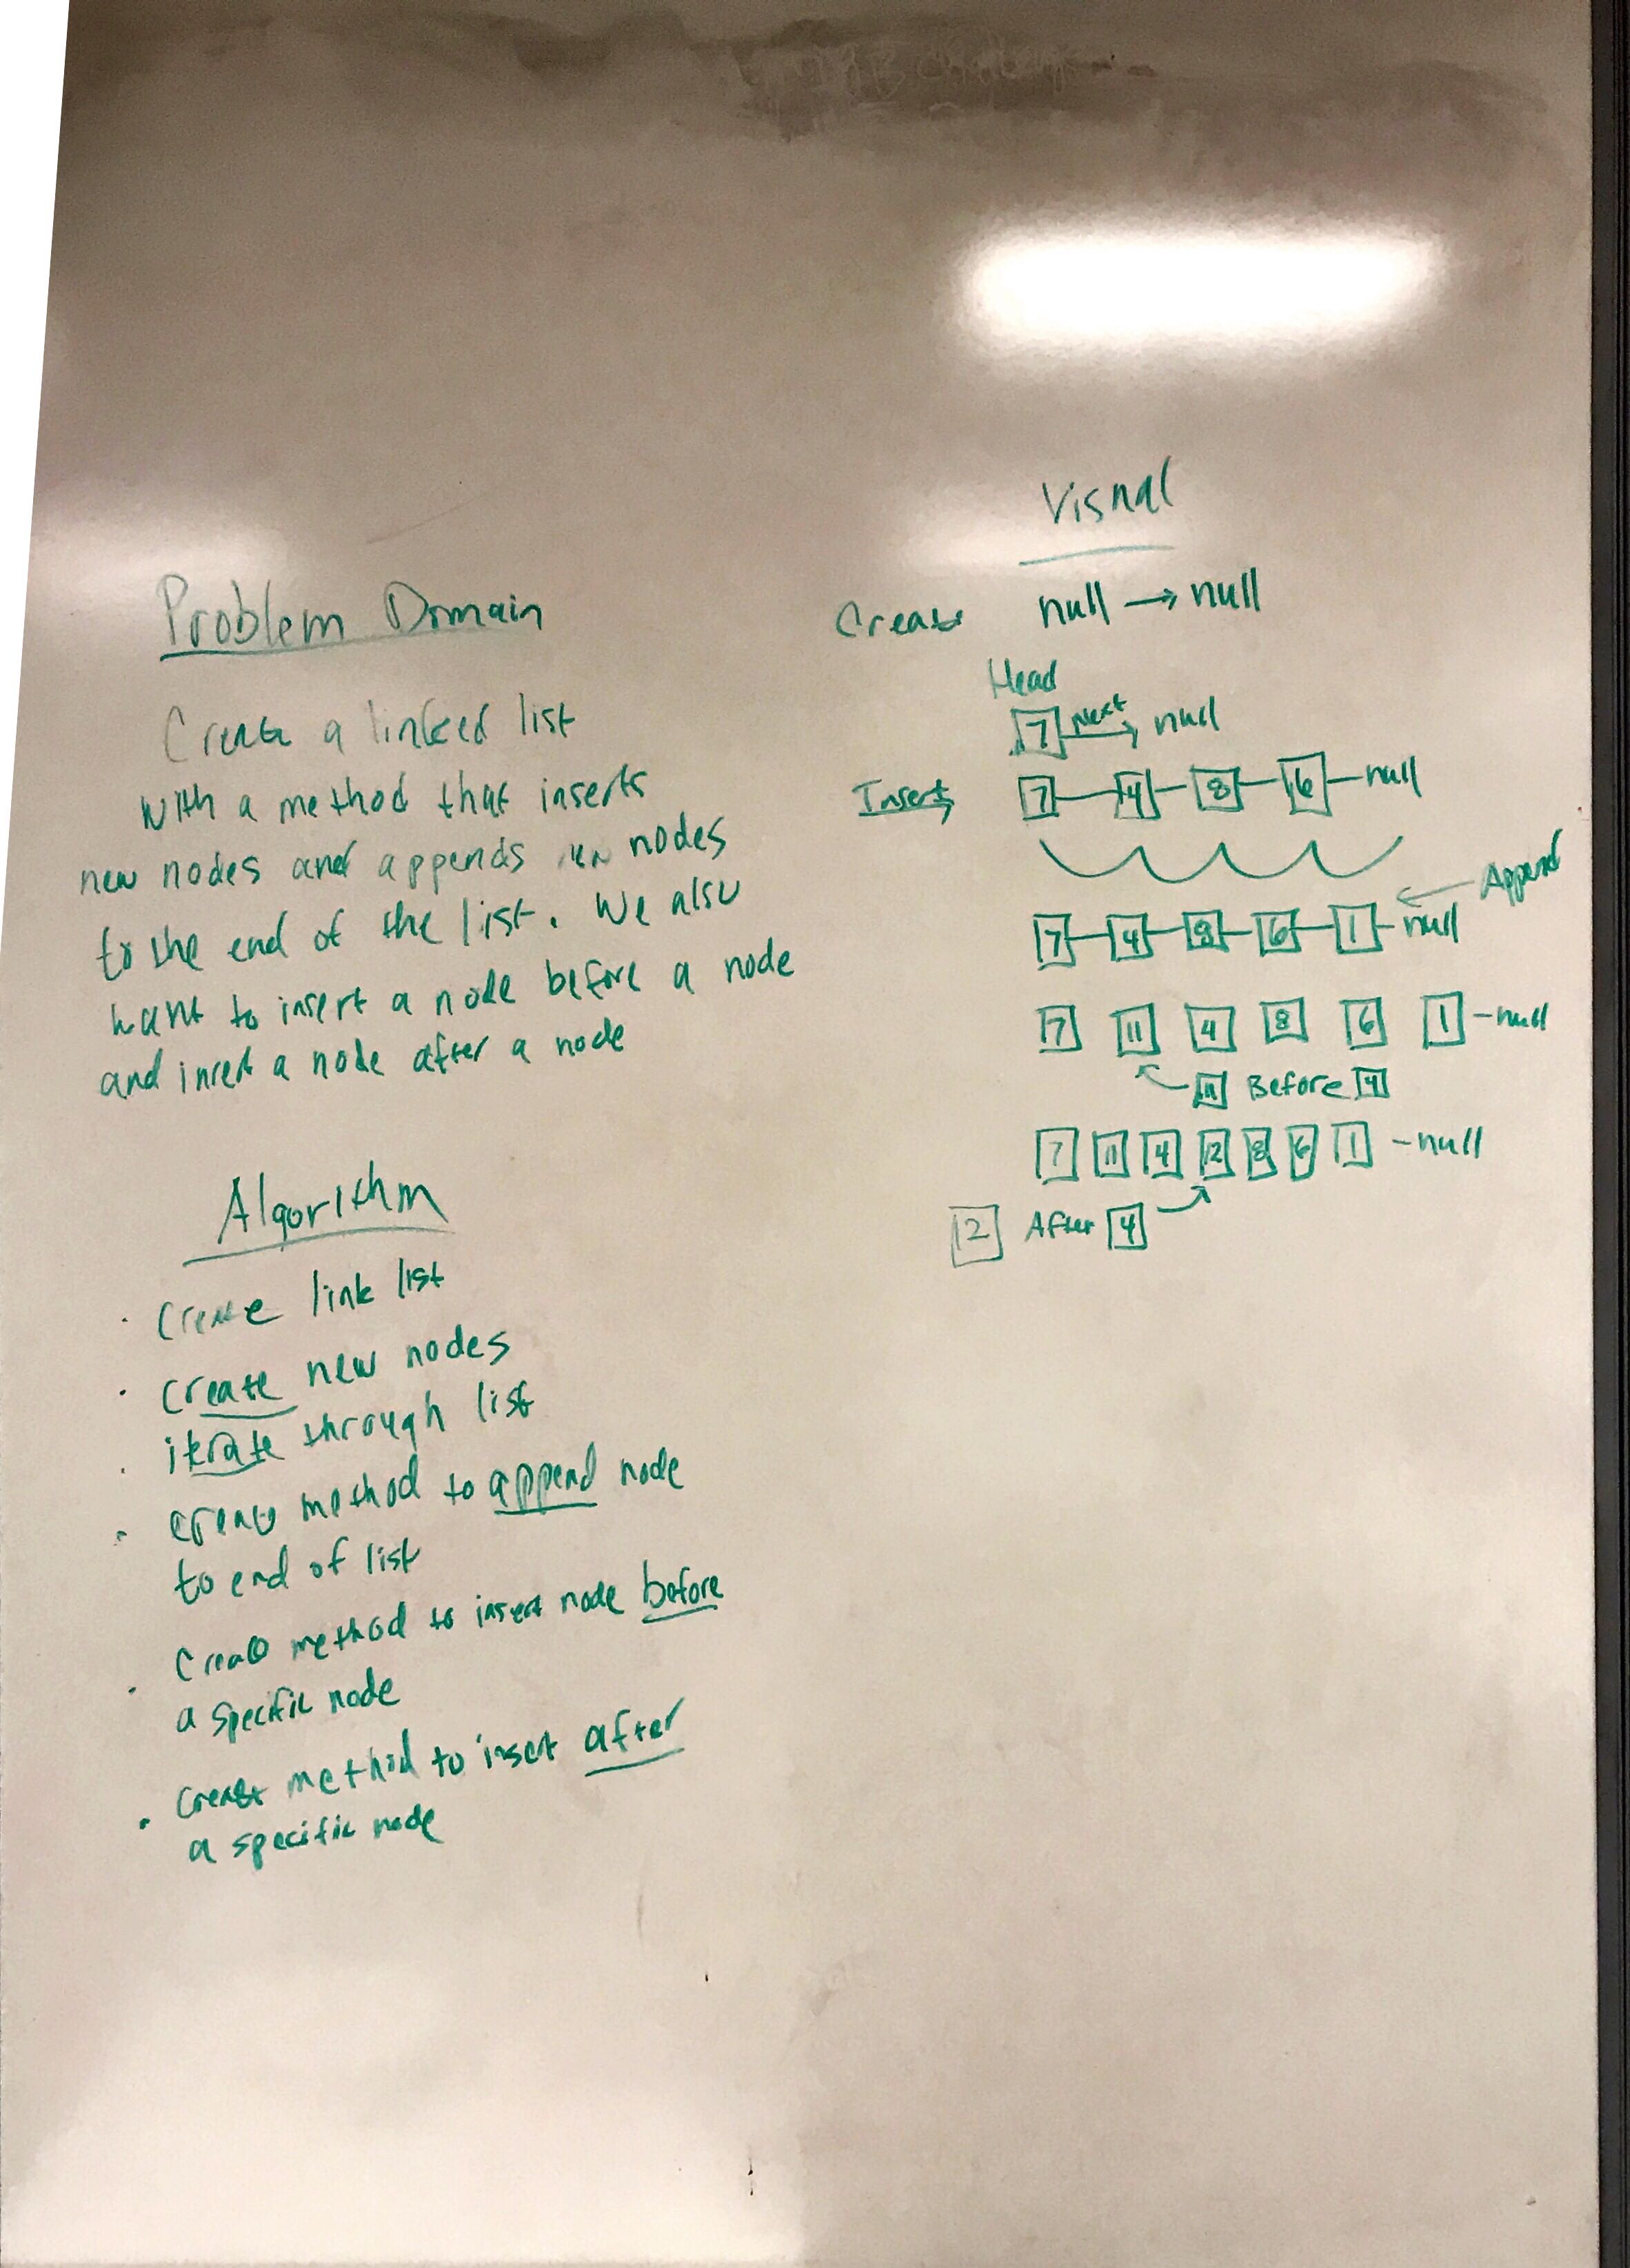 Problem Domain
Create a linked list
with a method that inserts
new nodes and appends nodes
to the end of the list. We also
want to insert a node before a node
and insert a node after a node
Algorithm
· Create link list
· Create new nodes
· iterate through list
· create method to append node
to end of list
· Create method to insert node before
a specific node
· Create method to insert after
a specific node
Visual
Create null → null
Head
7 Next → null
Insert → 7 — 4 — 8 — 6 — null
← Append
7 — 4 — 8 — 6 — 1 — null
7 11 4 8 6 1 - null
11 Before 4
7 11 4 12 8 6 1 - null
12 After 4